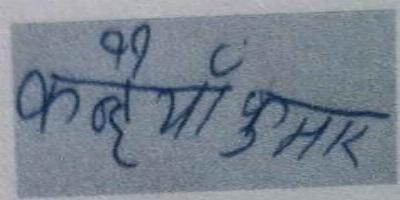 कन्हैयाँ कुमार